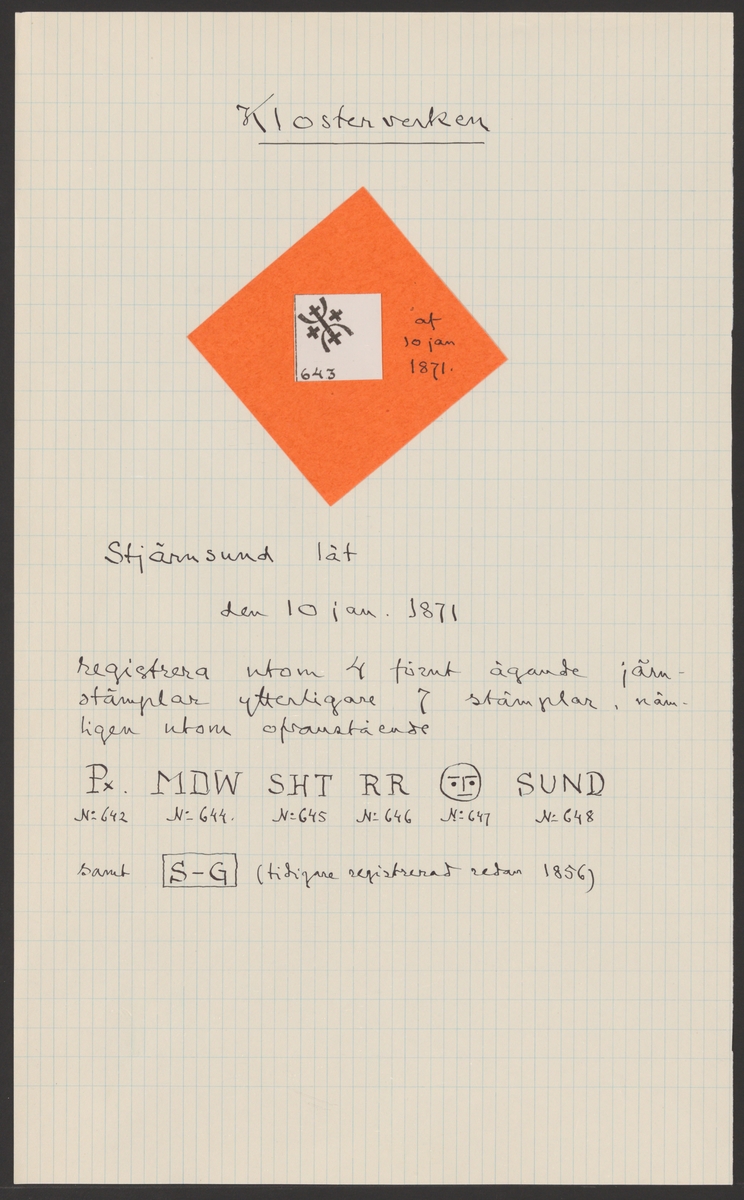 Klosterverken
af
10 jan
1871.
643
Stjärnsund lät
den 10 jan. 1871
registrera utom 4 förut ägande järn-
stämplar ytterligare 7 stämplar, näm-
ligen utom ofvanstående
Px. MDW SHT RR SUND
No 642 No 644. No 645 No 646 No 647 No 648
samt S-G (tidigare registrerad redan 1856)